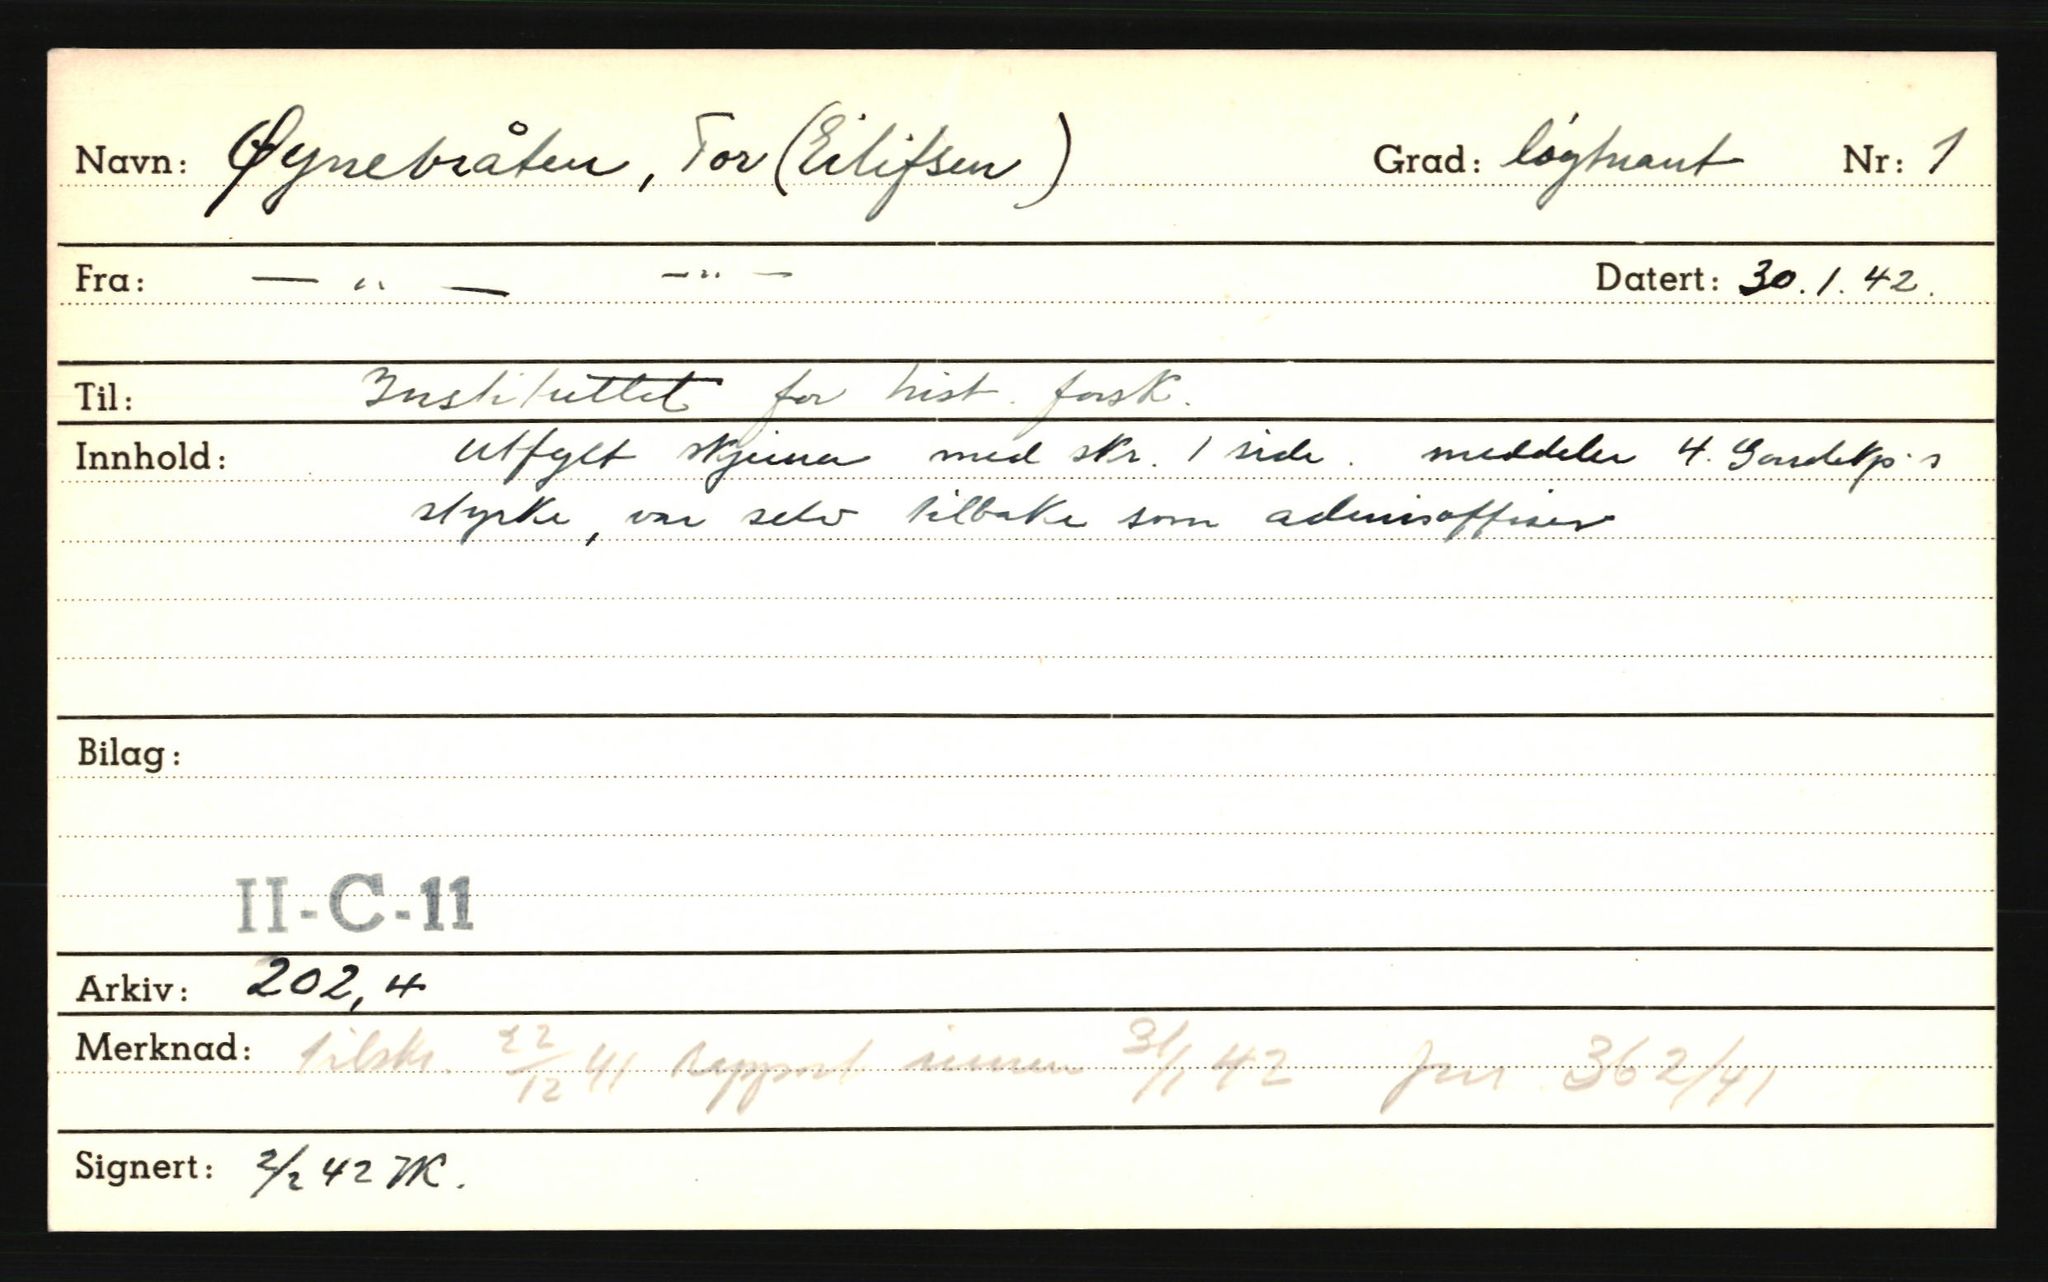 Navn: Øynebråten, Tor (Eilifsen) Grad: løytnant Nr: 1
Fra: — " — — " — Datert: 30.1.42.
Til: Instituttet for hist. forsk.
Innhold: utfylt skjema med skr. 1 side. meddeler 4. Gardekp.s
styrke, var selv tilbake som adm.offiser
Bilag:
II-C-11
Arkiv: 202,4
Merknad: tilskr. 22/12 41 Rapport innen 31/1 42 Jnr. 362/41
Signert: 2/2 42